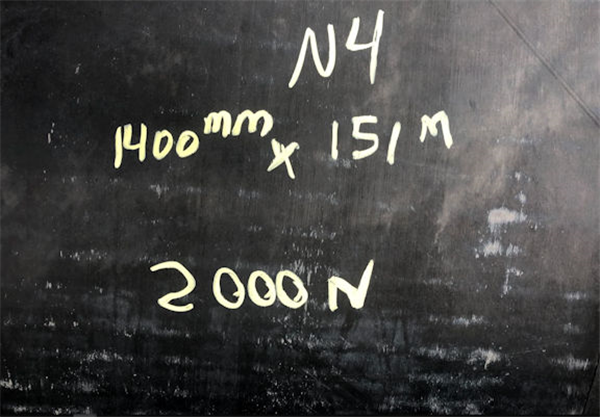 N4
1400mm x 151m
2000 N